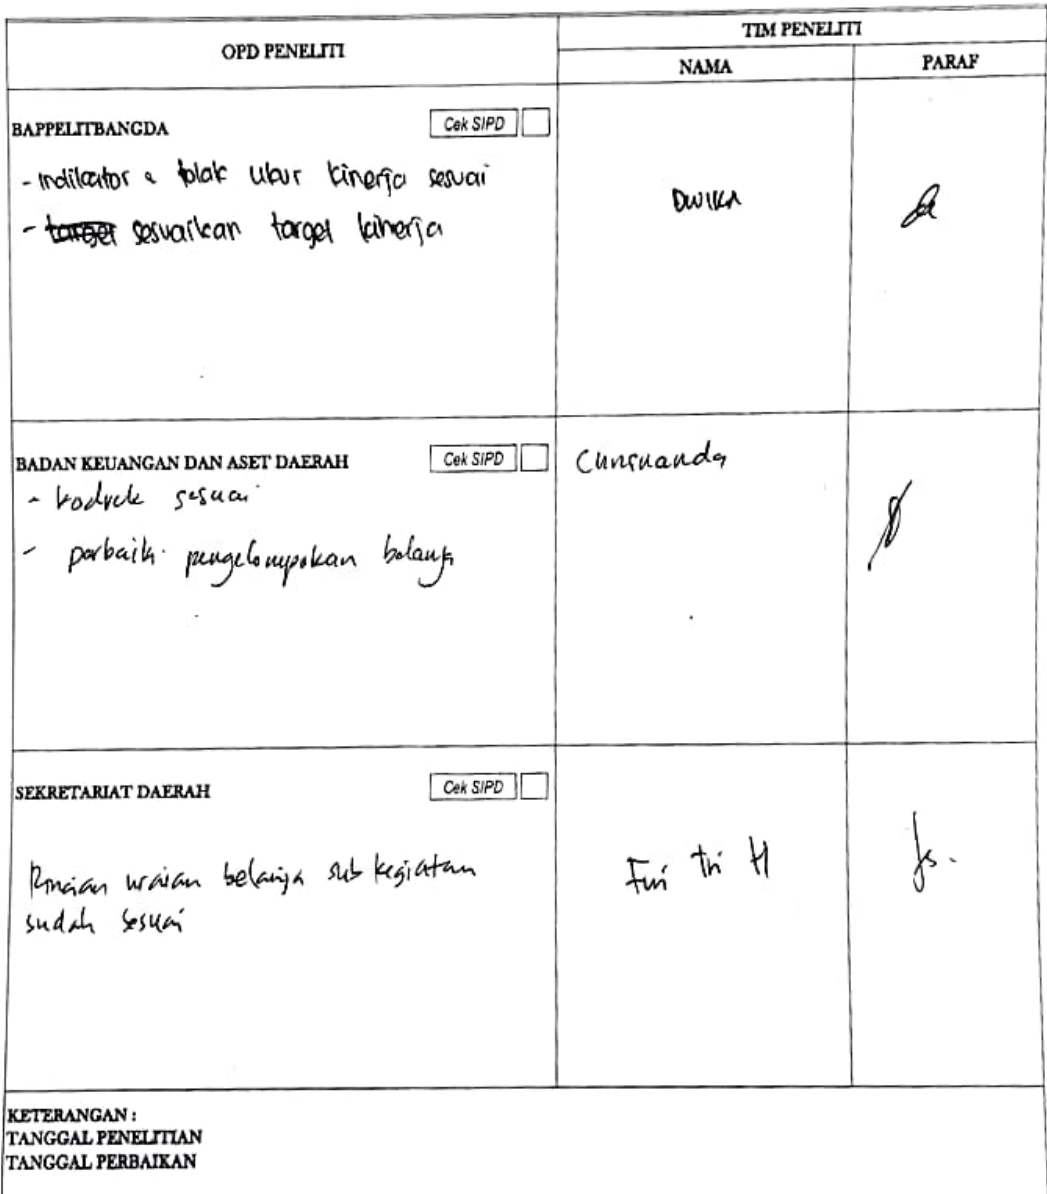 OPD PENELITI
TIM PENELITI
NAMA
PARAF
BAPPELITBANGDA
Cek SIPD
- indikator & tolak ukur kinerja sesuai
- target sesuaikan target kinerja
DWIKA
BADAN KEUANGAN DAN ASET DAERAH
Cek SIPD
- sesuai
- perbaiki pengelompokan belanja
SEKRETARIAT DAERAH
Cek SIPD
Rincian uraian belanja sub kegiatan
sudah sesuai
Tri H
KETERANGAN :
TANGGAL PENELITIAN
TANGGAL PERBAIKAN